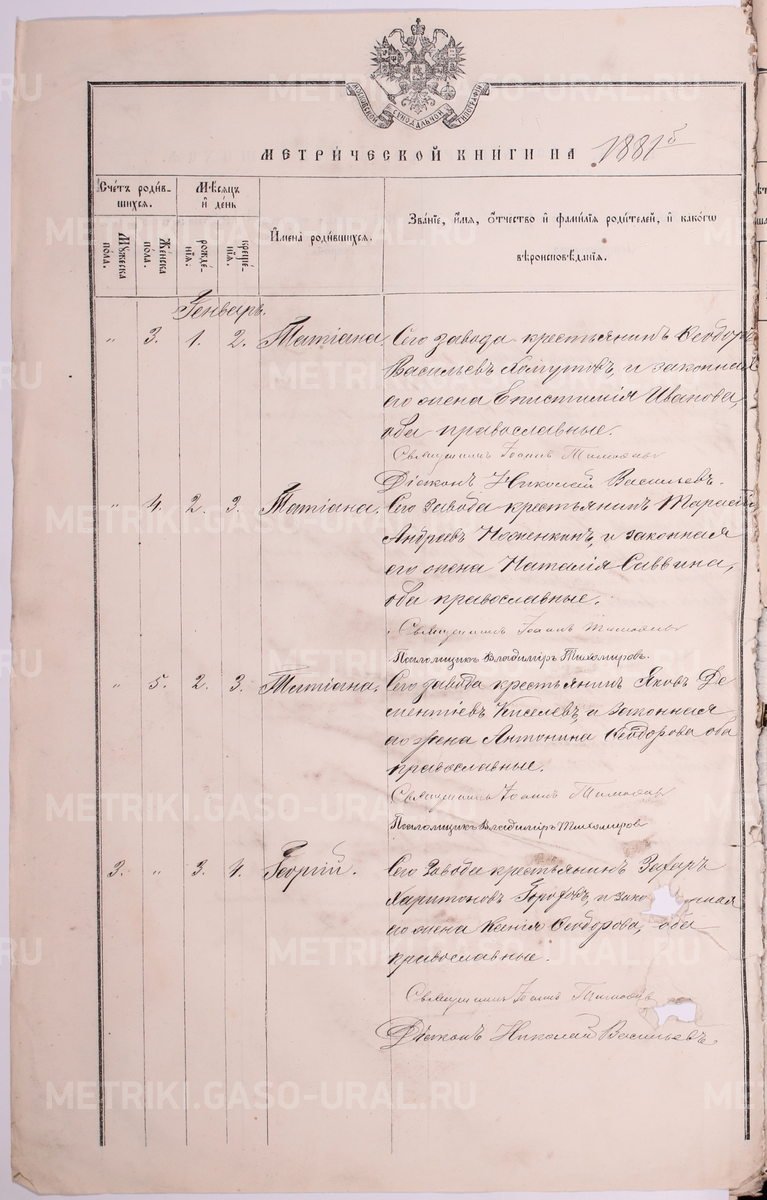 МОСКОВСКОЙ СѴНОДАЛЬНОЙ ТИПОГРАФІИ
МЕТРИЧЕСКОЙ КНИГИ НА 1881
Счетъ родившихся.
Мѣсяцъ и день
Имена родившихся.
Званіе, имя, отчество и фамилія родителей, и какого
вѣроисповѣданія.
Мужеска пола.
Женска пола.
рожденія.
крещенія.
Генварь.
„ 3. 1. 2. Татіана. Сего завода крестьянинъ Ѳеодоръ
Васильевъ Хомутовъ, и законная
его жена Епистимія Иванова,
оба православные.
Священникъ Іоаннъ
Діаконъ Николай Васильевъ.
„ 4. 2. 3. Татіана. Сего завода крестьянинъ Тарасій
Андреевъ и законная
его жена Наталія Саввина,
оба православные.
Священникъ Іоаннъ
Псаломщикъ Владиміръ Тихомировъ.
„ 5. 2. 3. Татіана. Сего завода крестьянинъ Яковъ Де
ментіевъ Киселевъ, и законная
его жена Антонина Ѳеодорова оба
православные.
Священникъ Іоаннъ
Псаломщикъ Владиміръ Тихомировъ
3. „ 3. 4. Георгій. Сего завода крестьянинъ Захаръ
Харитоновъ и зако нная
его жена Ксенія Ѳеодорова, оба
православные.
Священникъ Іоаннъ
Діаконъ Николай Васильевъ.
METRIKI.GASO-URAL.RU